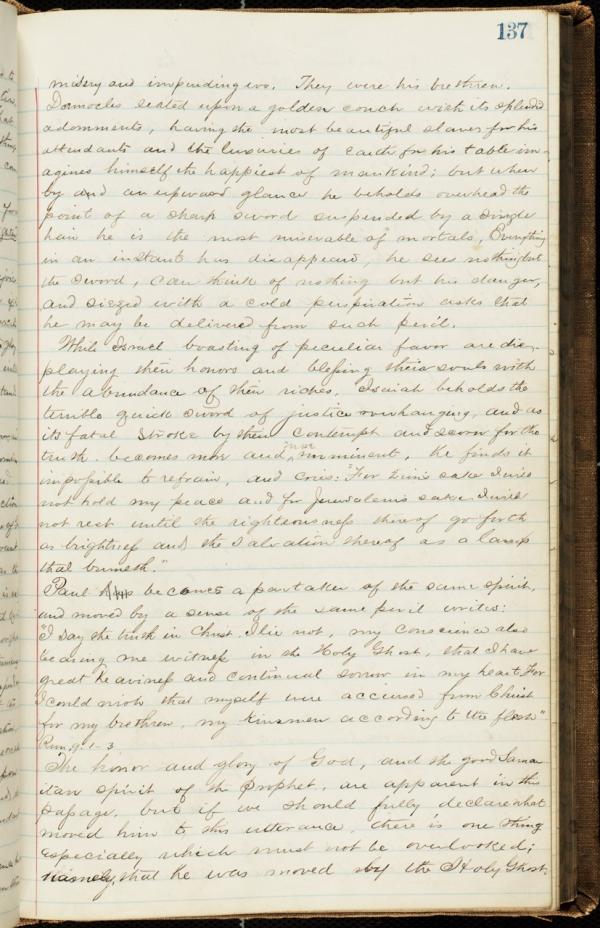 137
misery and impending wo. They were his brethren.
Damocles seated upon a golden couch with its splendid
adornments, having the most beautiful slaves for his
attendants and the luxuries of earth for his table im-
agines himself the happiest of mankind; but when
by and an upward glance he beholds overhead the
point of a sharp sword suspended by a single
hair he is the most miserable of mortals, Everything
in an instant has disappeard, he sees nothing but
the sword, can think of nothing but his danger,
and siezed with a cold perspiration asks that
he may be delivered from such peril.
While Israel boasting of peculiar favor are dis-
playing their honors and blessing their souls with
the abundance of their riches, Isaiah beholds the
terrible quick sword of justice overhanging, and as
its fatal stroke by their contempt and scorn for the
truth becomes mor and more imminent, he finds it
impossible to refrain, and cries: "For Zion's sake I will
not hold my peace and for Jerusalem's sake I will
not rest until the righteousness thereof go forth
as brightness and the salvation thereof as a lamp
that burneth."
Paul becomes a partaker of the same spirit,
and moved by a sense of the same peril writes:
"I say the truth in Christ, I lie not, my conscience also
bearing me witness in the Holy Ghost, that I have
great heaviness and continual sorrow in my heart. For
I could wish that myself were accursed from Christ
for my brethren, my kinsmen according to the flesh"
Rom. 9. 1-3
The honor and glory of God, and the good Samar
itan spirit of the Prophet, are apparent in this
passage, but if we should fully declare what
moved him to this utterance, there is one thing
especially which must not be overlooked;
namely, that he was moved by the Holy Ghost,